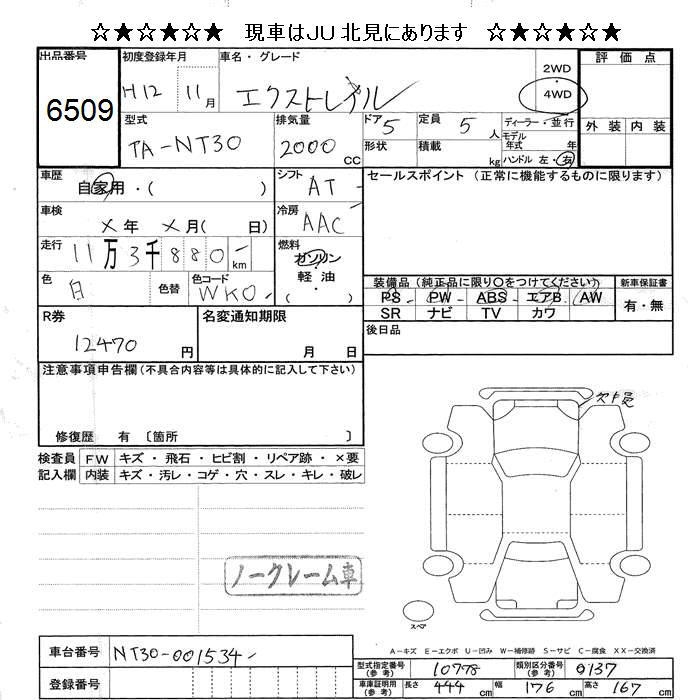 ☆★☆★☆★ 現車はJU北見にあります ☆★☆★☆★
出品番号 初度登録年月 車名・グレード 評価点
6509 H12 11月 エクストレイル 2WD 4WD
外装 内装
型式 TA-NT30 排気量 2000CC ドア 5 定員 5人 ディーラー・並行
形状 積載 kg モデル年式 年
ハンドル 左・右
車歴 自家用・( ) シフト AT
セールスポイント (正常に機能するものに限ります)
車検 ×年 ×月( 日) 冷房 AAC
走行 11万3千880km 燃料 ガソリン・軽油・( )
色 白 色替 色コード WKO
装備品(純正品に限り○をつけてください) 新車保証書
PS PW ABS エアB AW 有・無
SR ナビ TV カワ
R券 12470円 名変通知期限 月 日
後日品
注意事項申告欄(不具合内容等は具体的に記入して下さい)
修復歴 有 〔箇所 〕
検査員 FW キズ・飛石・ヒビ割・リペア跡・×要
記入欄 内装 キズ・汚レ・コゲ・穴・スレ・キレ・破レ
ノークレーム車
スペア
A-キズ E-エクボ U-凹み W-補修跡 S-サビ C-腐食 XX-交換済
車台番号 NT30-001534
登録番号
型式指定番号(参考) 10778 類別区分番号(参考) 0137
車庫証明用(参考) 長さ 444cm 幅 176cm 高さ 167cm